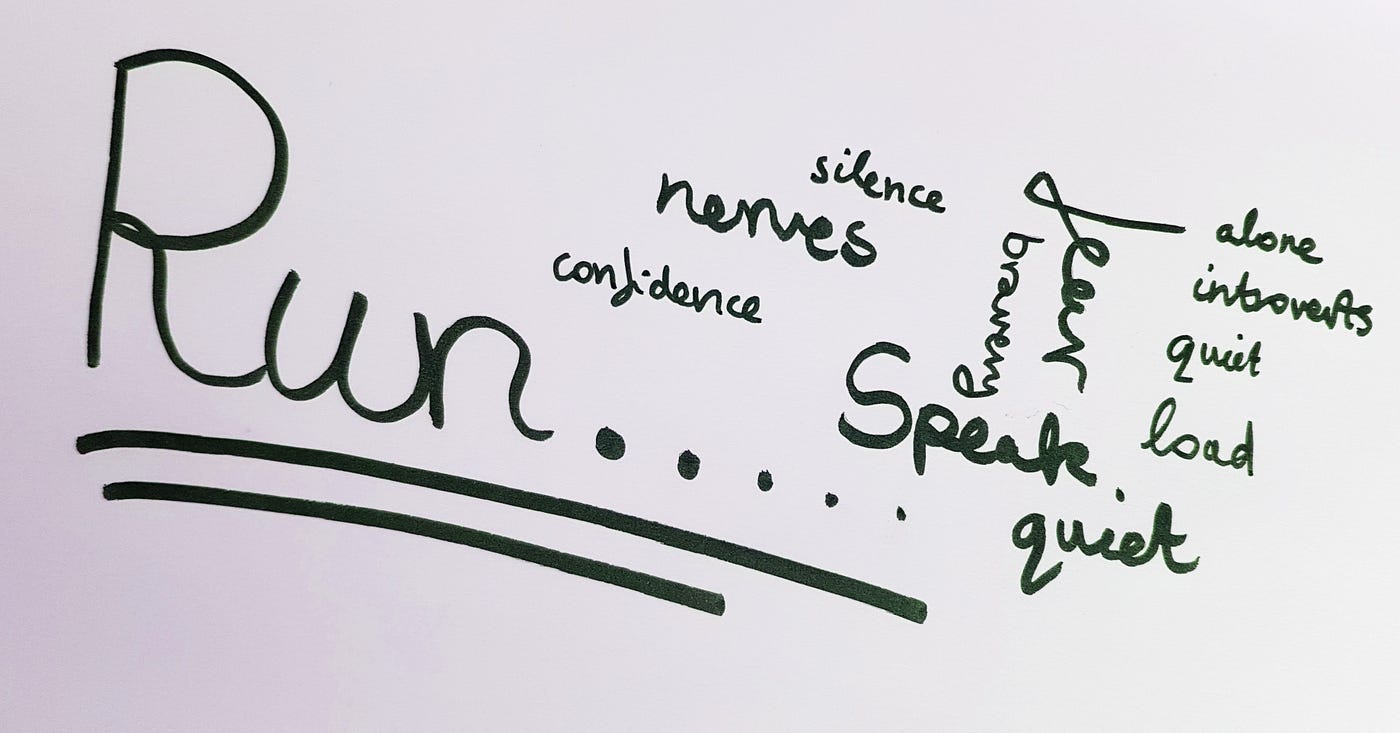 Run.....
silence
nerves
confidence
fear
bravery
alone
introverts
quiet
load
Speak.
quiet